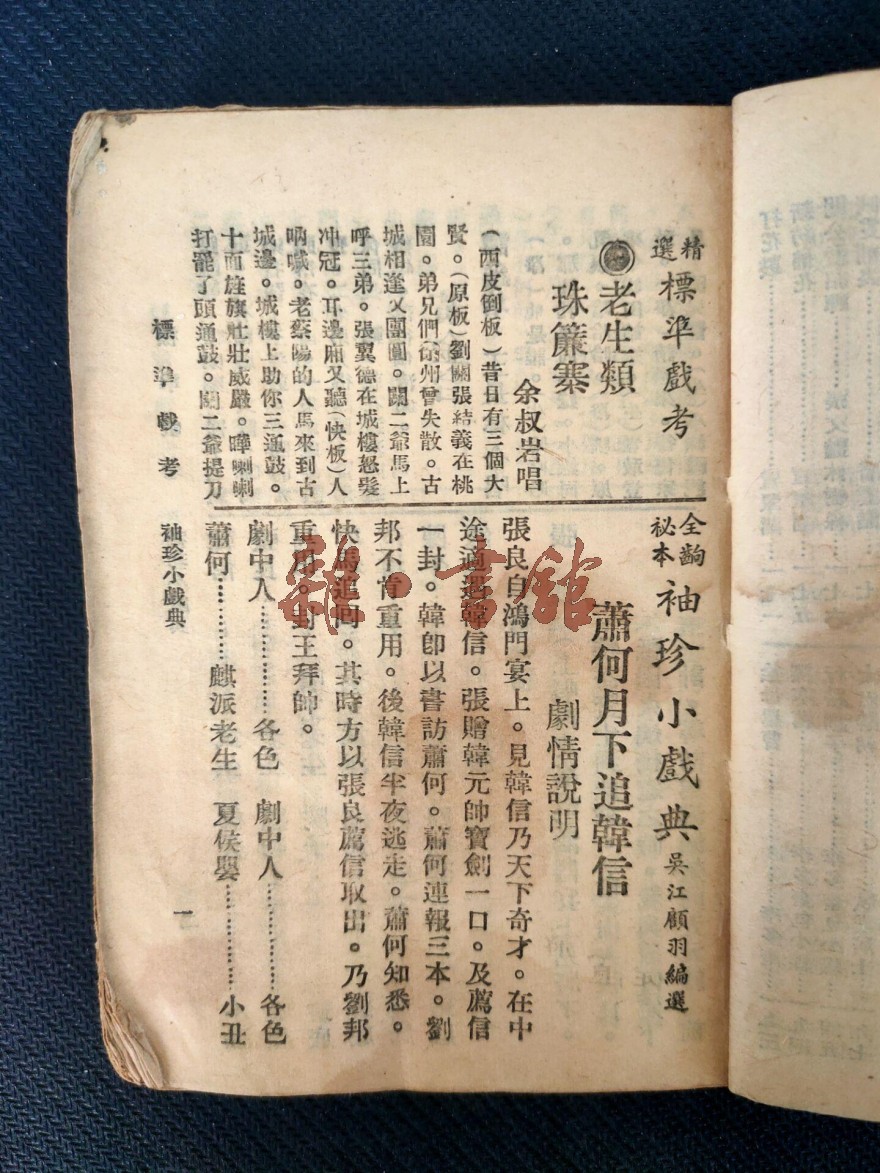 精選 標準戲考
老生類
珠簾寨
余叔岩唱
(西皮倒板)昔日有三個大
賢。(原板)劉關張結義在桃
園。弟兄們徐州曾失散。古
城相逢又團圓。關二爺馬上
呼三弟。張翼德在城樓怒髮
冲冠。耳邊廂又聽(快板)人
吶喊。老蔡陽的人馬來到古
城邊。城樓上助你三通鼓。
十面旌旗壯壯威嚴。嘩喇喇
打罷了頭通鼓。關二爺提刀
標準戲考
全齣秘本 袖珍小戲典 吳江顧羽編選
蕭何月下追韓信
劇情說明
張良自鴻門宴上。見韓信乃天下奇才。在中
途適遇韓信。張贈韓元帥寶劍一口。及薦信
一封。韓卽以書訪蕭何。蕭何連報三本。劉
邦不肯重用。後韓信半夜逃走。蕭何知悉。
快馬追回。其時方以張良薦信取出。乃劉邦
重用。封王拜帥。
劇中人…………各色 劇中人…………各色
蕭何…………麒派老生 夏侯嬰…………小丑
袖珍小戲典
一
雜·書館